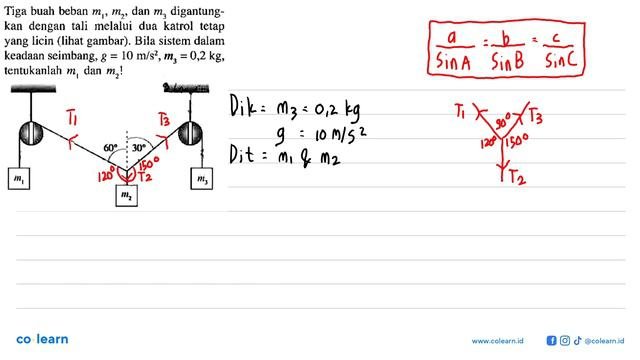 Tiga buah beban m₁, m₂, dan m₃ digantung-
kan dengan tali melalui dua katrol tetap
yang licin (lihat gambar). Bila sistem dalam
keadaan seimbang, g = 10 m/s², m₃ = 0,2 kg,
tentukanlah m₁ dan m₂!
T1 T3
60° 30°
120° 150°
T2
m₁ m₂ m₃
Dik = m3 = 0,2 kg
g = 10 m/s²
Dit = m1 & m2
a/sin A = b/sin B = c/sin C
T1 90° T3
120° 150°
T2
co learn
www.colearn.id @colearn.id